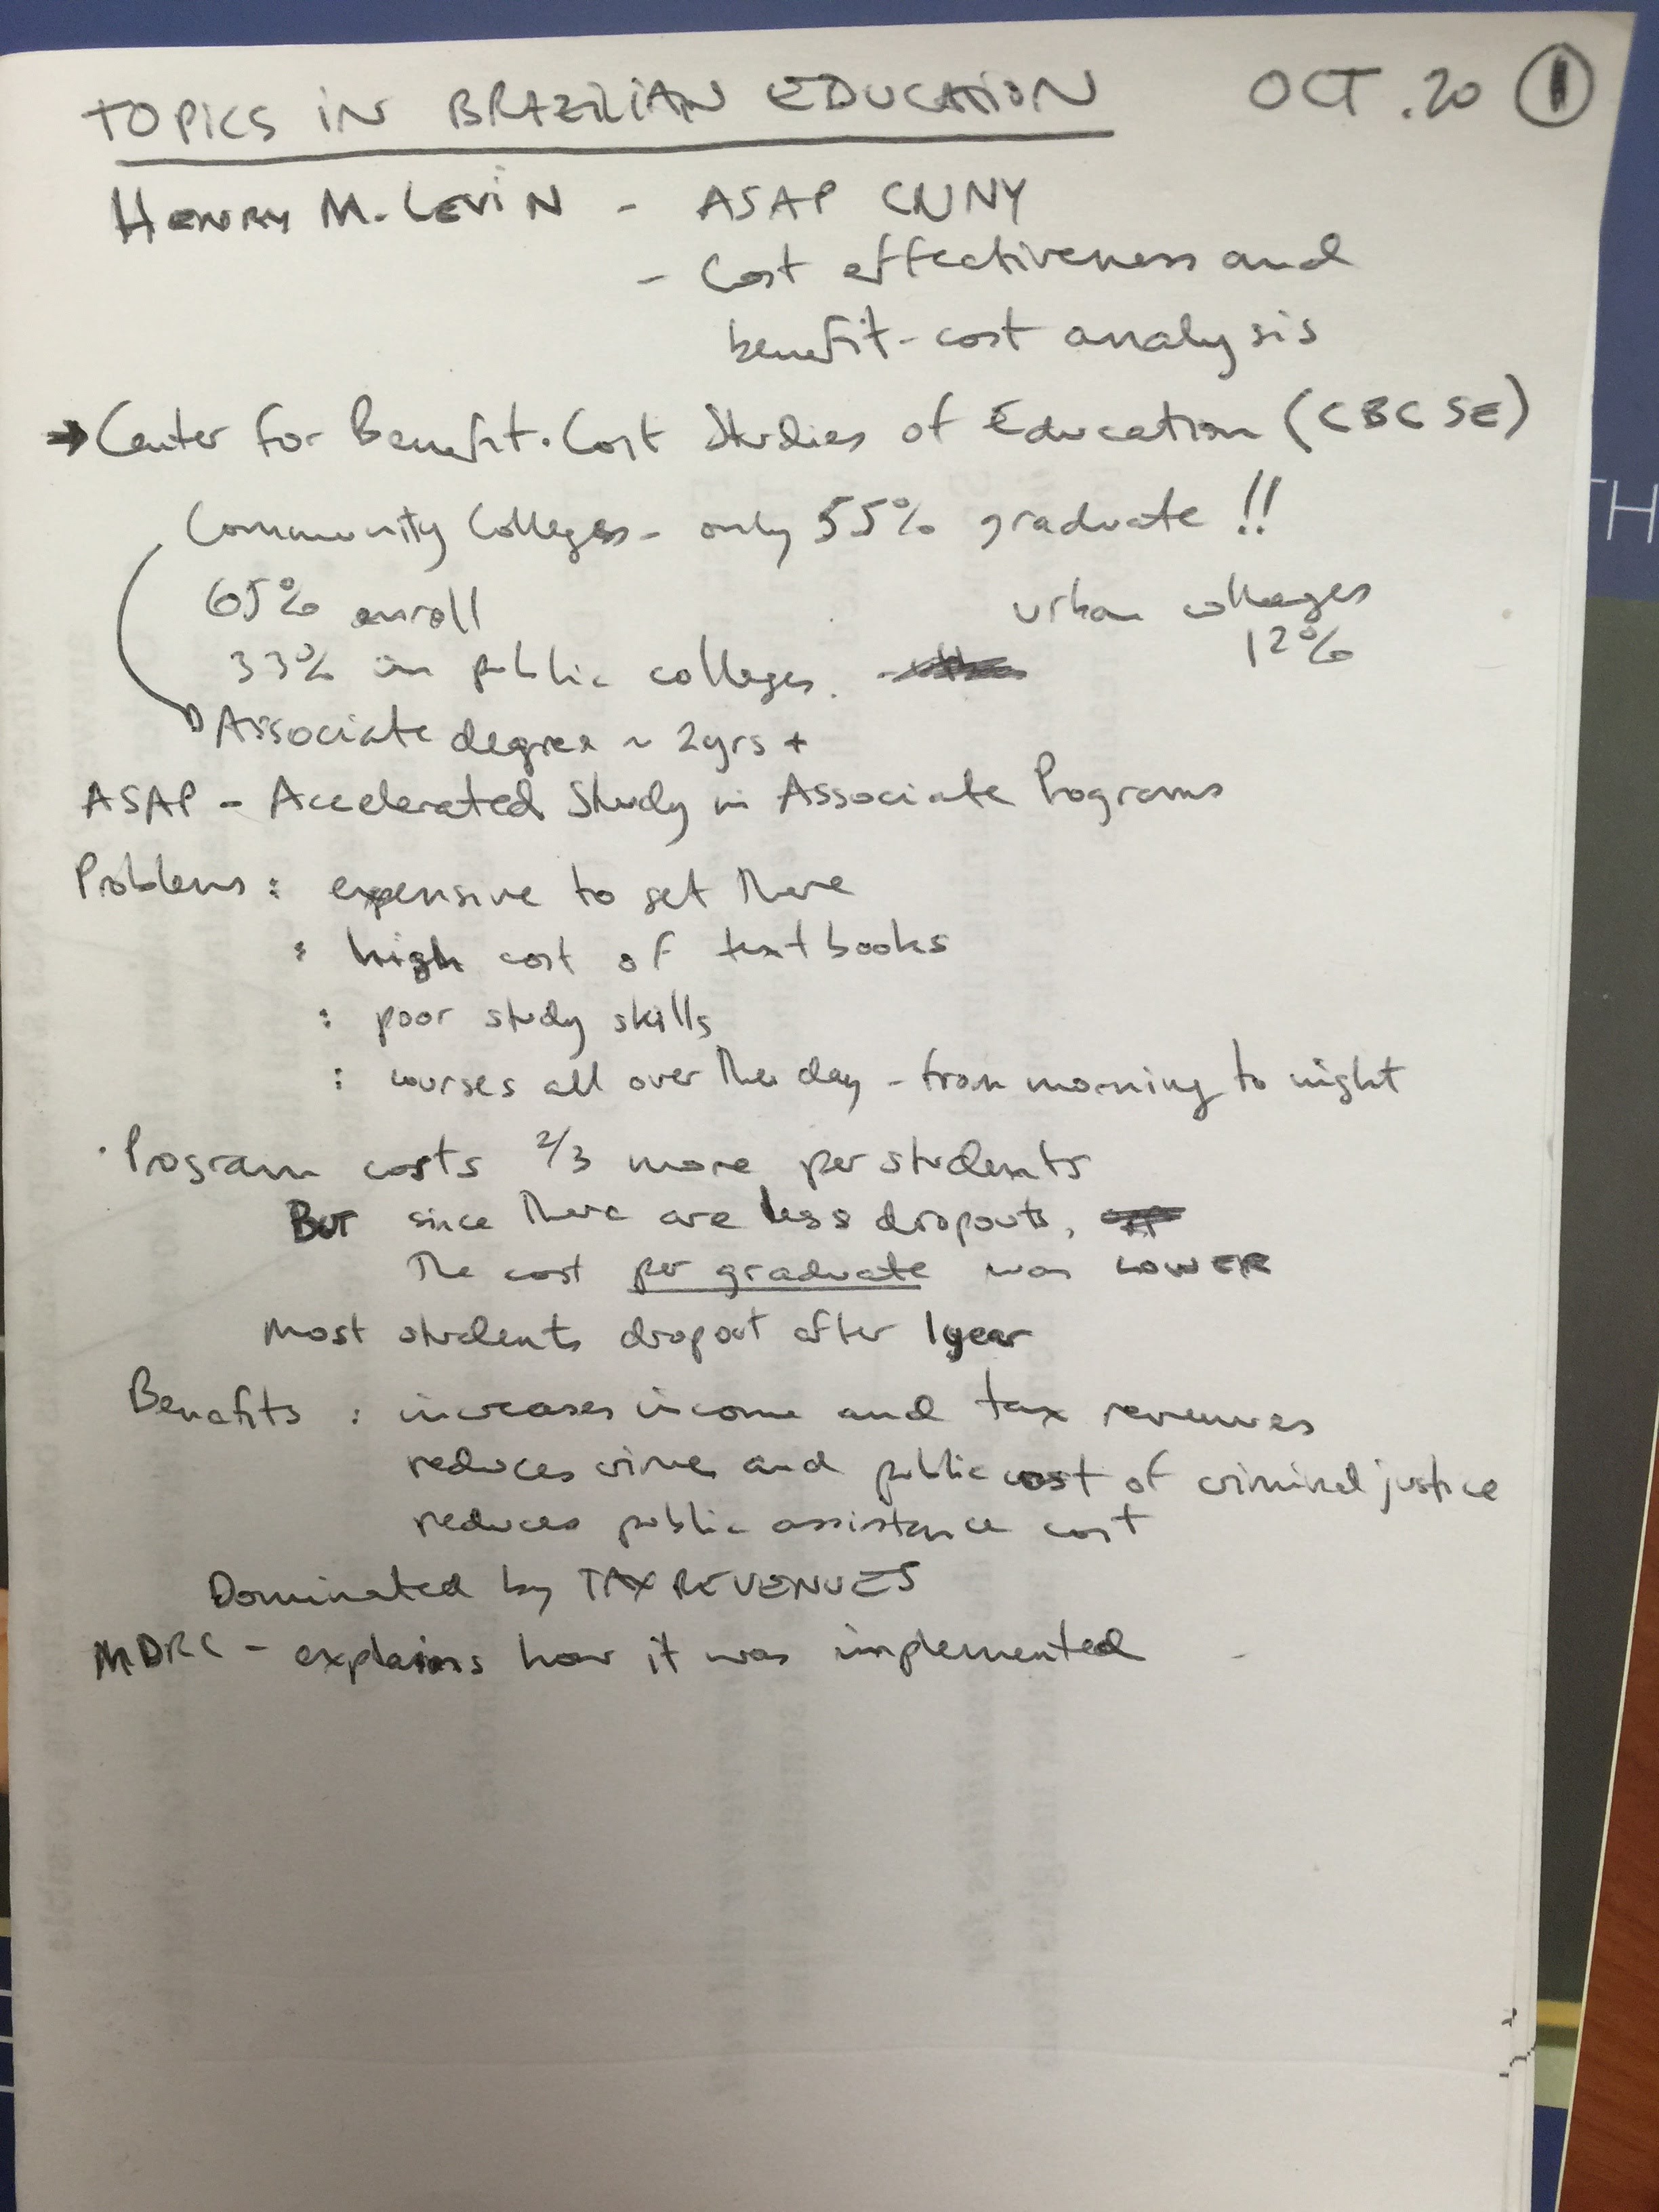 TOPICS IN BRAZILIAN EDUCATION OCT. 20 1
HENRY M. LEVIN - ASAP CUNY
- Cost effectiveness and
benefit-cost analysis
→ Center for Benefit-Cost Studies of Education (CBCSE)
Community Colleges - only 55% graduate !!
65% enroll urban colleges
33% in public colleges. 12%
Associate degree ~ 2yrs +
ASAP - Accelerated Study in Associate Programs
Problems : expensive to get there
: high cost of textbooks
: poor study skills
: courses all over the day - from morning to night
· Program costs 2/3 more per students
BUT since there are less dropouts,
the cost per graduate was LOWER
Most students dropout after 1 year
Benefits : increases income and tax revenues
reduces crime and public cost of criminal justice
reduces public assistance cost
Dominated by TAX REVENUES
MDRC - explains how it was implemented
TH